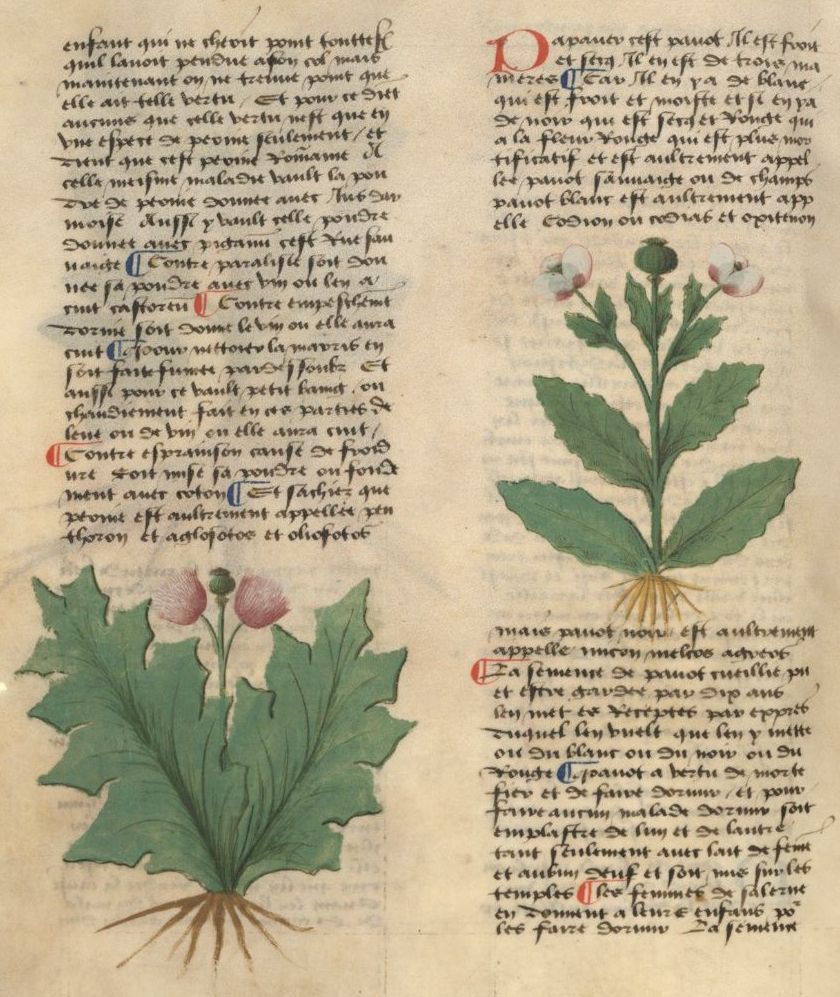 enfant qui ne cheoit point touttesf
quil lavoit pendue a son col mais
maintenant on ne treuve point que
elle ait telle vertu / Et pour ce diet
aucuns que celle vertu nest que en
vne espece de peonie seulement / et
dient que cest peonie Rommaine A
celle meisme maladie vault la pou
dre de peonie donnee avec Jus dar
moise Aussi y vault celle pouldre
donnee avec pigami cest Rue sau
uaige ¶ Contre paralisie soit don
nee sa pouldre avec vin ou len a
cuit castoreu ¶ Contre empeschemt
dorine soit donne le vin ou elle aura
cuit ¶ Pour nettoier la marris en
soit faite fumee par dessoubz Et
aussi pour ce vault petit baing ou
chaudiement fait en ces parties de
leue ou de vin ou elle aura cuit /
¶ Contre esprainson cause de froid
ure Soit mise sa pouldre ou fonde
ment avec coton ¶ Et sachiez que
peonie est aultrement appellee pen
thoron et aglofotos et oliofotos
Papaver cest pavot Il est froit
et secq Il en est de trois ma
nieres ¶ Car Il en ya de blanc
qui est froit et moiste et si en ya
de noir qui est secq et Rouge qui
a la fleur Rouge qui est plus mor
tificatif et est aultrement appel
lee pavot sauuaige ou de champs
pavot blanc est aultrement app
elle Codion ou codias et oxitenon
mais pavot noir est aultrement
appelle micon melcos agreos
¶ La semence de pavot cueillie pu
et estre gardee par dix ans
len met es Receptes par expres
duquel len vuelt que len y mette
ou du blanc ou du noir ou du
Rouge ¶ Pavot a vertu de morte
fier et de faire dormir / et pour
faire aucun malade dormir soit
emplastre de lun et de lautre
tant seulement avec lait de feme
et aubun deuf et soit mis sur les
temples ¶ les femmes de salerne
en donnent a leurs enfans po
les faire dormir La semence